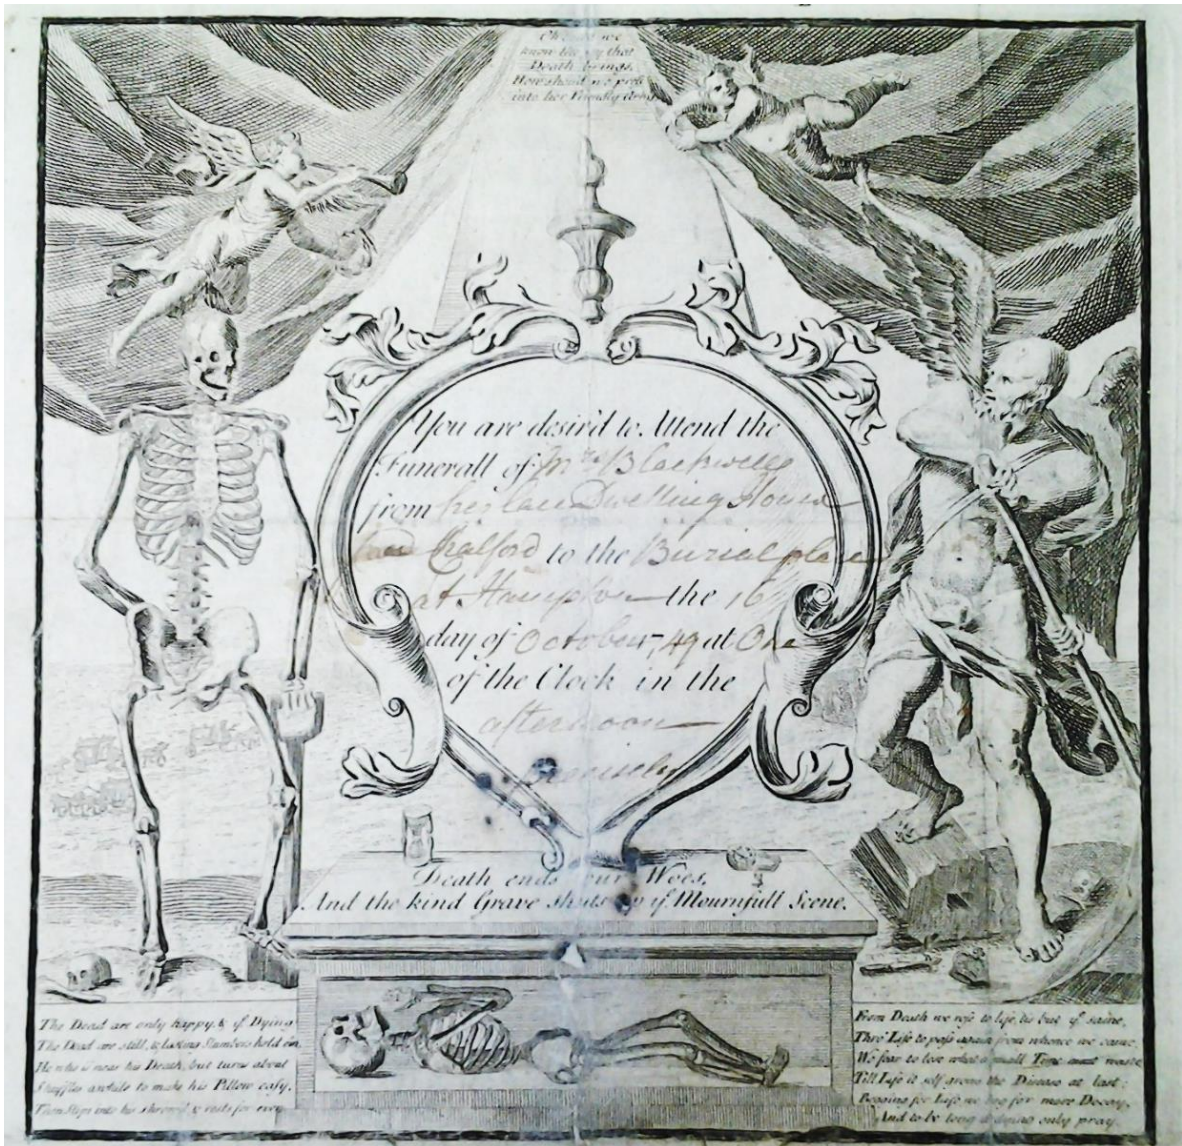 Oh cou'd we
know the joy that
Death brings,
How shou'd we press
into her Friendly Arms
You are desir'd to Attend the
Funerall of Mrs Blackwell
from her late Dwelling House
Chalford to the Burial place
at Hampton the 16
day of October 1749 at One
of the Clock in the
afternoon
precisely
Death ends our Woes,
And the kind Grave shuts up yͤ Mournfull Scene.
The Dead are only happy, & yͤ Dying
The Dead are still, & lasting Slumbers hold 'em,
He who is near his Death, but turns about
Shuffles awhile to make his Pillow easy,
Then Slips into his shrowd & rests for ever
From Death we rose to life, tis but yͤ same,
Thro' Life to pass again from whence we came.
We fear to lose what a small Time must waste
Till Life it self grows the Disease at last:
Begging for Life we beg for more Decay,
And to be long a dying only pray.